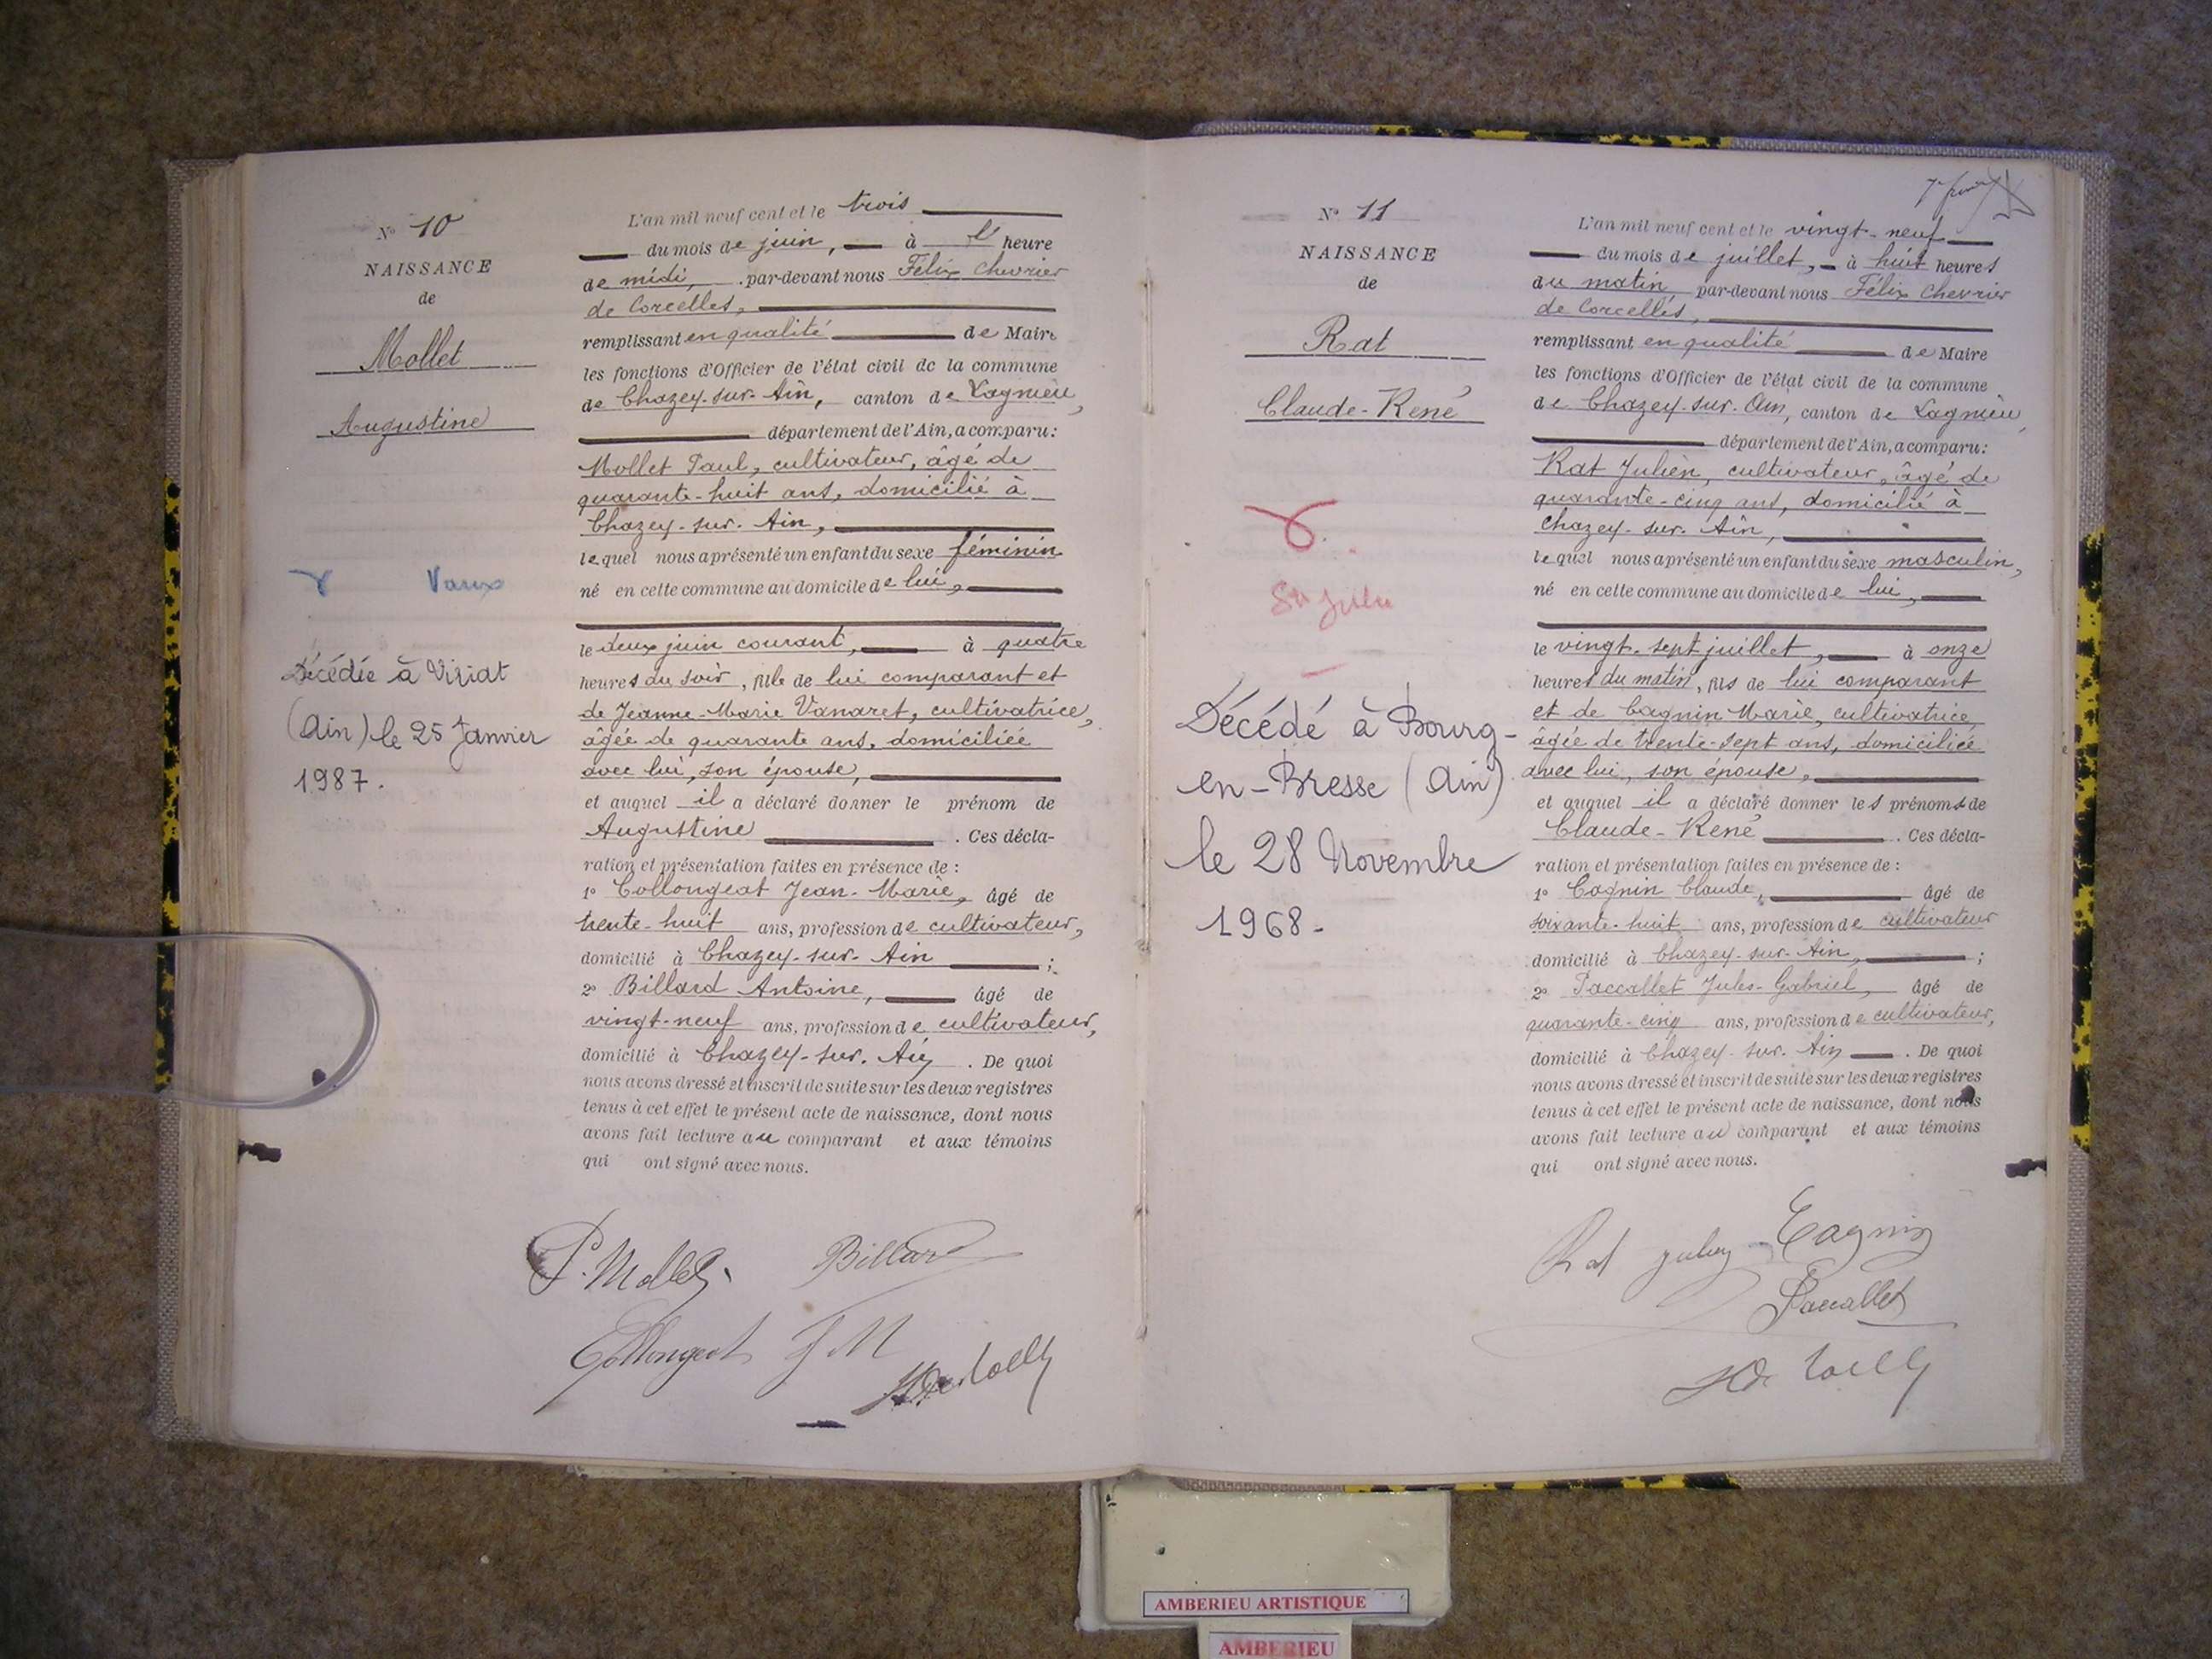 N° 10
NAISSANCE
de
Mollet
Augustine
Vaux
Décédée à Viriat
(Ain) le 25 Janvier
1987.
L'an mil neuf cent et le trois
du mois de juin, à l' heure
de midi, par-devant nous Félix Chevrier
de Corcelles,
remplissant en qualité de Maire
les fonctions d'Officier de l'état civil de la commune
de Chazey-sur-Ain, canton de Lagnieu,
département de l'Ain, a comparu:
Mollet Paul, cultivateur, âgé de
quarante-huit ans, domicilié à
Chazey-sur-Ain,
lequel nous a présenté un enfant du sexe féminin
né en cette commune au domicile de lui,
le deux juin courant, à quatre
heures du soir, fille de lui comparant et
de Jeanne-Marie Vanaret, cultivatrice,
âgée de quarante ans, domiciliée
avec lui, son épouse,
et auquel il a déclaré donner le prénom de
Augustine . Ces décla-
ration et présentation faites en présence de :
1° Collongeat Jean-Marie, âgé de
trente-huit ans, profession de cultivateur,
domicilié à Chazey-sur-Ain ;
2° Billard Antoine, âgé de
vingt-neuf ans, profession de cultivateur,
domicilié à Chazey-sur-Ain . De quoi
nous avons dressé et inscrit de suite sur les deux registres
tenus à cet effet le présent acte de naissance, dont nous
avons fait lecture au comparant et aux témoins
qui ont signé avec nous.
P. Mollet
Billard
Collongeat J M
N° 11
NAISSANCE
de
Rat
Claude-René
Décédé à Bourg-
en-Bresse (Ain)
le 28 Novembre
1968.
L'an mil neuf cent et le vingt-neuf
du mois de juillet, à huit heures
du matin par-devant nous Félix Chevrier
de Corcelles,
remplissant en qualité de Maire
les fonctions d'Officier de l'état civil de la commune
de Chazey-sur-Ain, canton de Lagnieu,
département de l'Ain, a comparu:
Rat Julien, cultivateur, âgé de
quarante-cinq ans, domicilié à
Chazey-sur-Ain,
lequel nous a présenté un enfant du sexe masculin,
né en cette commune au domicile de lui,
le vingt-sept juillet, à onze
heures du matin, fils de lui comparant
et de Cagnin Marie, cultivatrice,
âgée de trente-sept ans, domiciliée
avec lui, son épouse,
et auquel il a déclaré donner les prénoms de
Claude-René . Ces décla-
ration et présentation faites en présence de :
1° Cagnin Claude, âgé de
soixante-huit ans, profession de cultivateur
domicilié à Chazey-sur-Ain, ;
2° Paccallet Jules-Gabriel, âgé de
quarante-cinq ans, profession de cultivateur,
domicilié à Chazey-sur-Ain . De quoi
nous avons dressé et inscrit de suite sur les deux registres
tenus à cet effet le présent acte de naissance, dont nous
avons fait lecture au comparant et aux témoins
qui ont signé avec nous.
Rat
Cagnin
Paccallet
AMBERIEU ARTISTIQUE
AMBERIEU